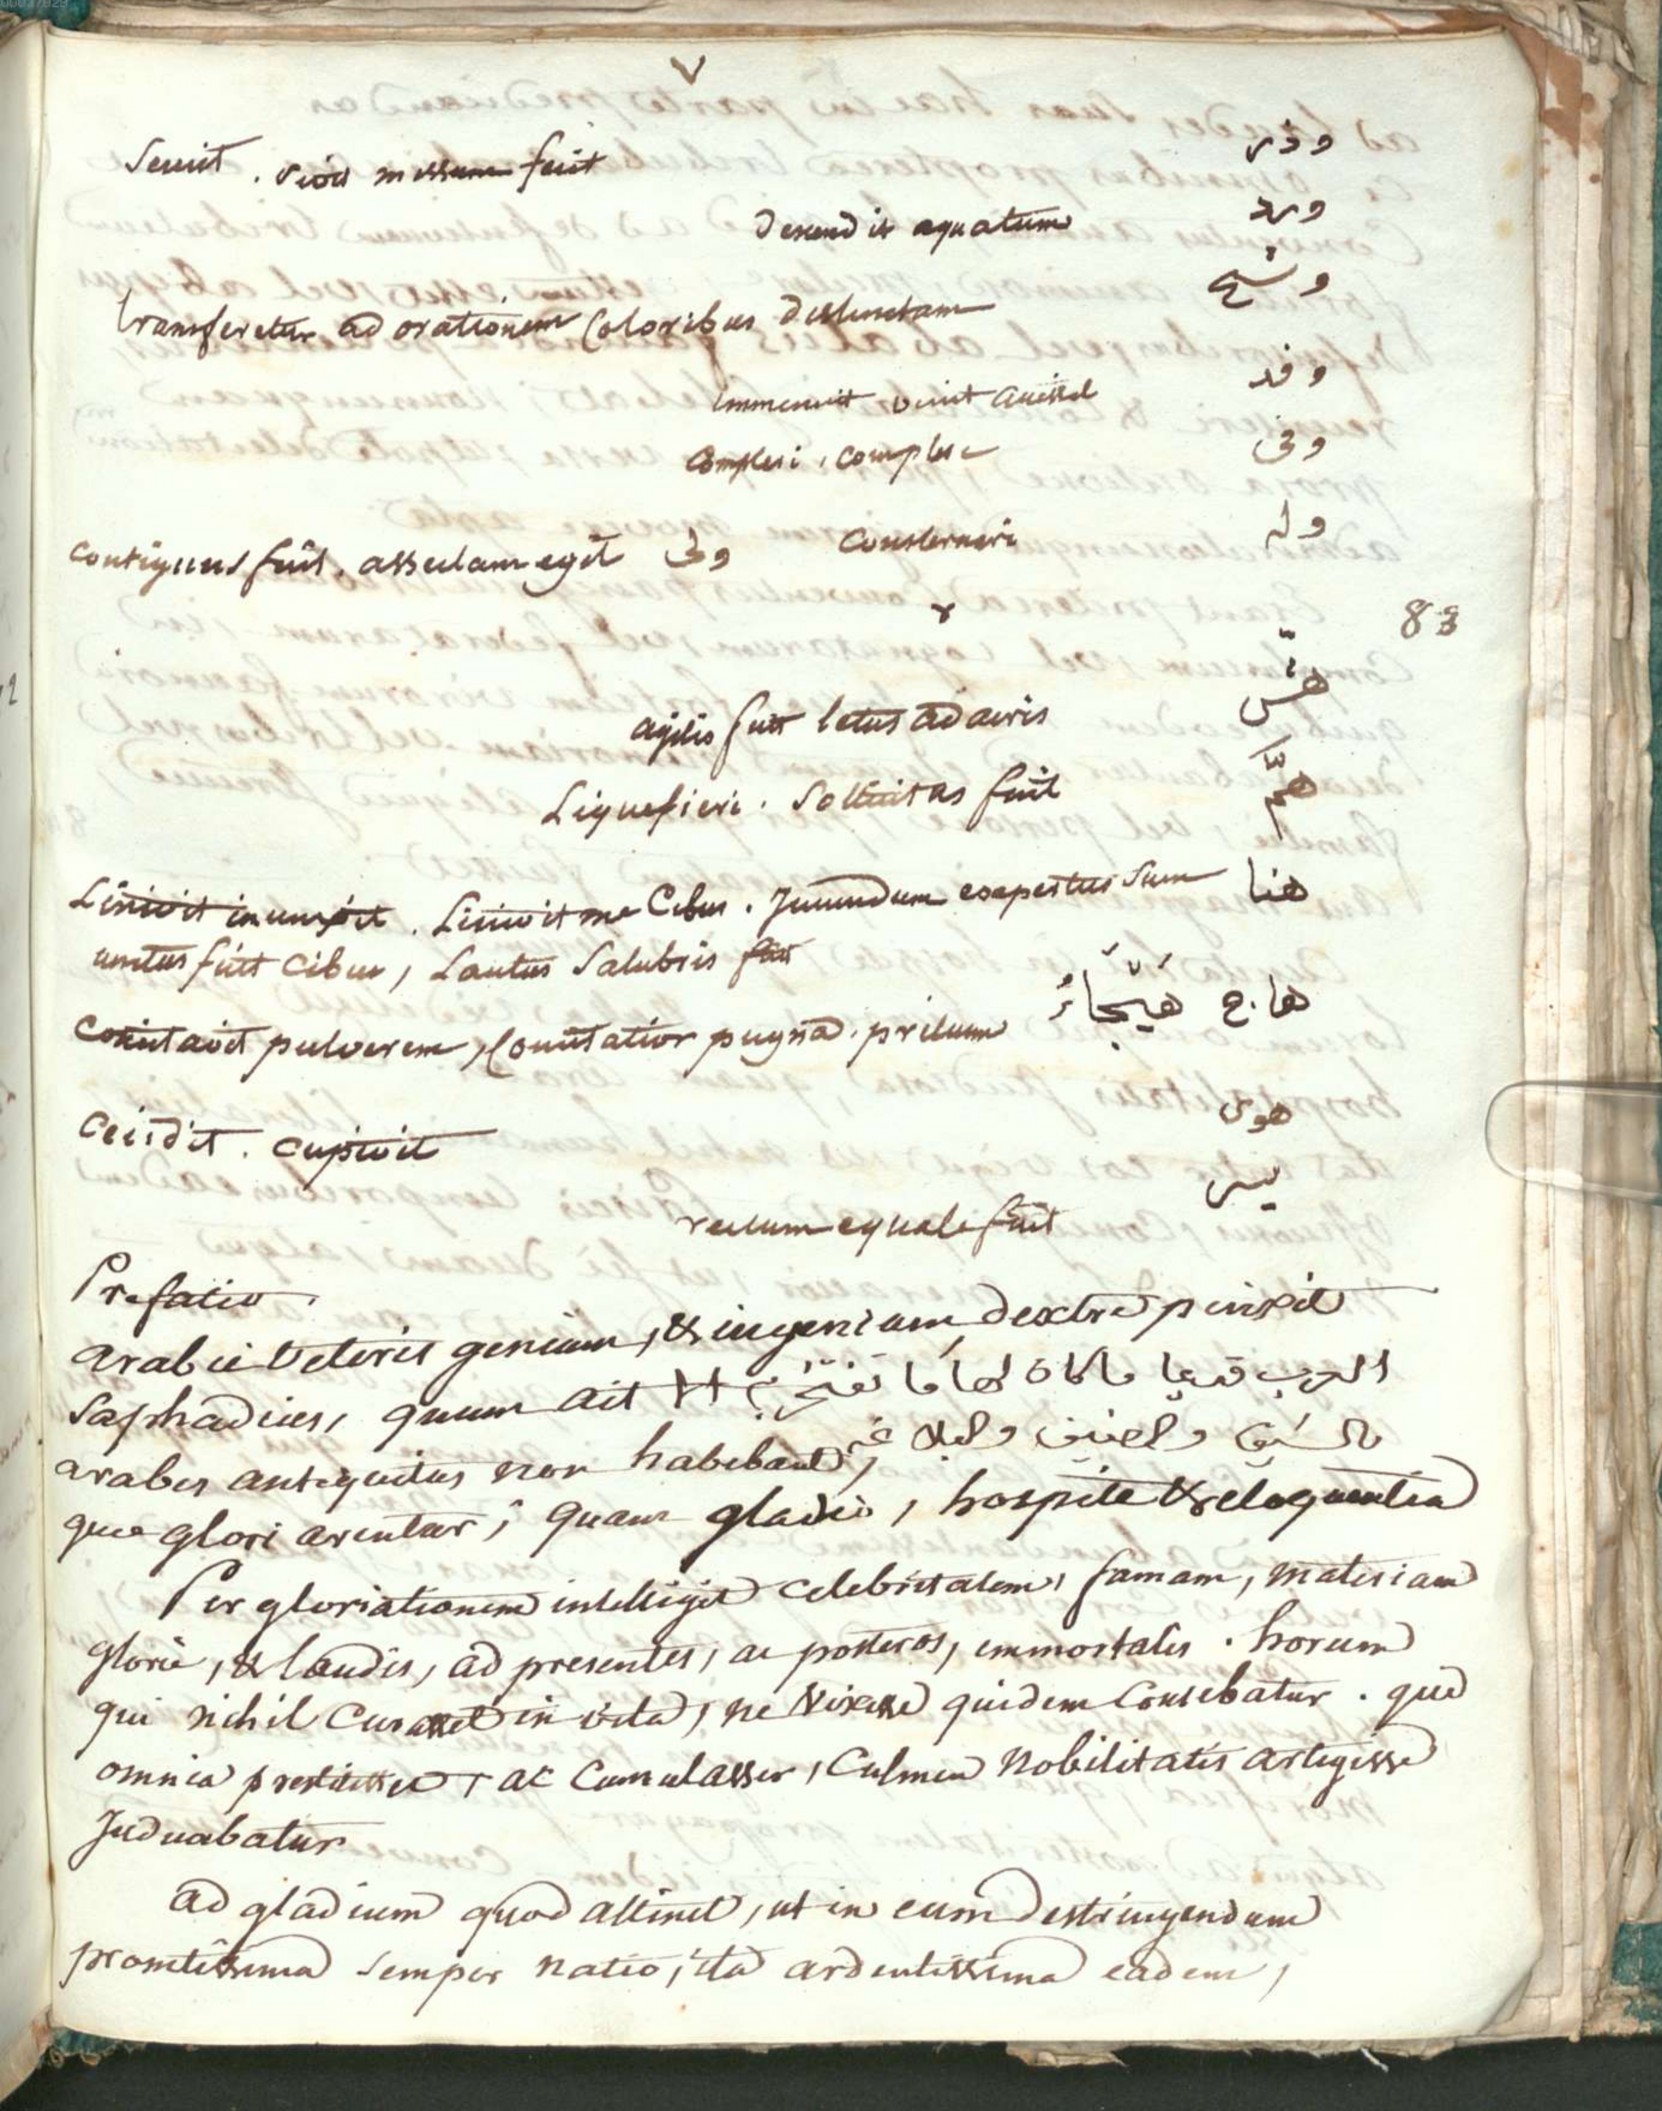 V
Seruit. missum fecit وذر
Descendit aquatum ورد
Transferetur ad orationem Coloribus Distinctam وشح
Imminuit venit وفد
Compleri, complere وفى
contiguus fuit, assedam egit ولى Consternari وله
83
agilis fuit letus هش
Liquefieri. Sollicitus fuit همّ
Linivit inunxit. Linivit me Cibus. Jucundum expertus Sum هنا
untus fuit cibus, Lautus Salubris fuit
Concitavit pulverem, Concitatior pugna. prelium هاج هيجاء
Cecidit. cupivit هوى
rectum equale fuit يسر
Prefatio.
Arabie veteris genium, & ingenium dextre pinxit
Saphadius, quum ait العرب قديما ما كان لها ما تفتخر به الا
arabes antiquitus non habebant, بالسيف والضيف والبلاغة
quo gloriarentur, quam gladio, hospite & eloquentia
Per gloriationem intelligit celebritatem, famam, materiam
glorie, & laudis, ad presentes, ac posteros, immortalis. horum
qui nihil Curasset in vita, ne vixisse quidem Censebatur. que
omnia prestitisset, ac Cumulasset, Culmen Nobilitatis attigisse
Judicabatur
ad gladium quod attinet, ut in eum Destringendum
promtissima semper natio, ita ardentissima eadem,